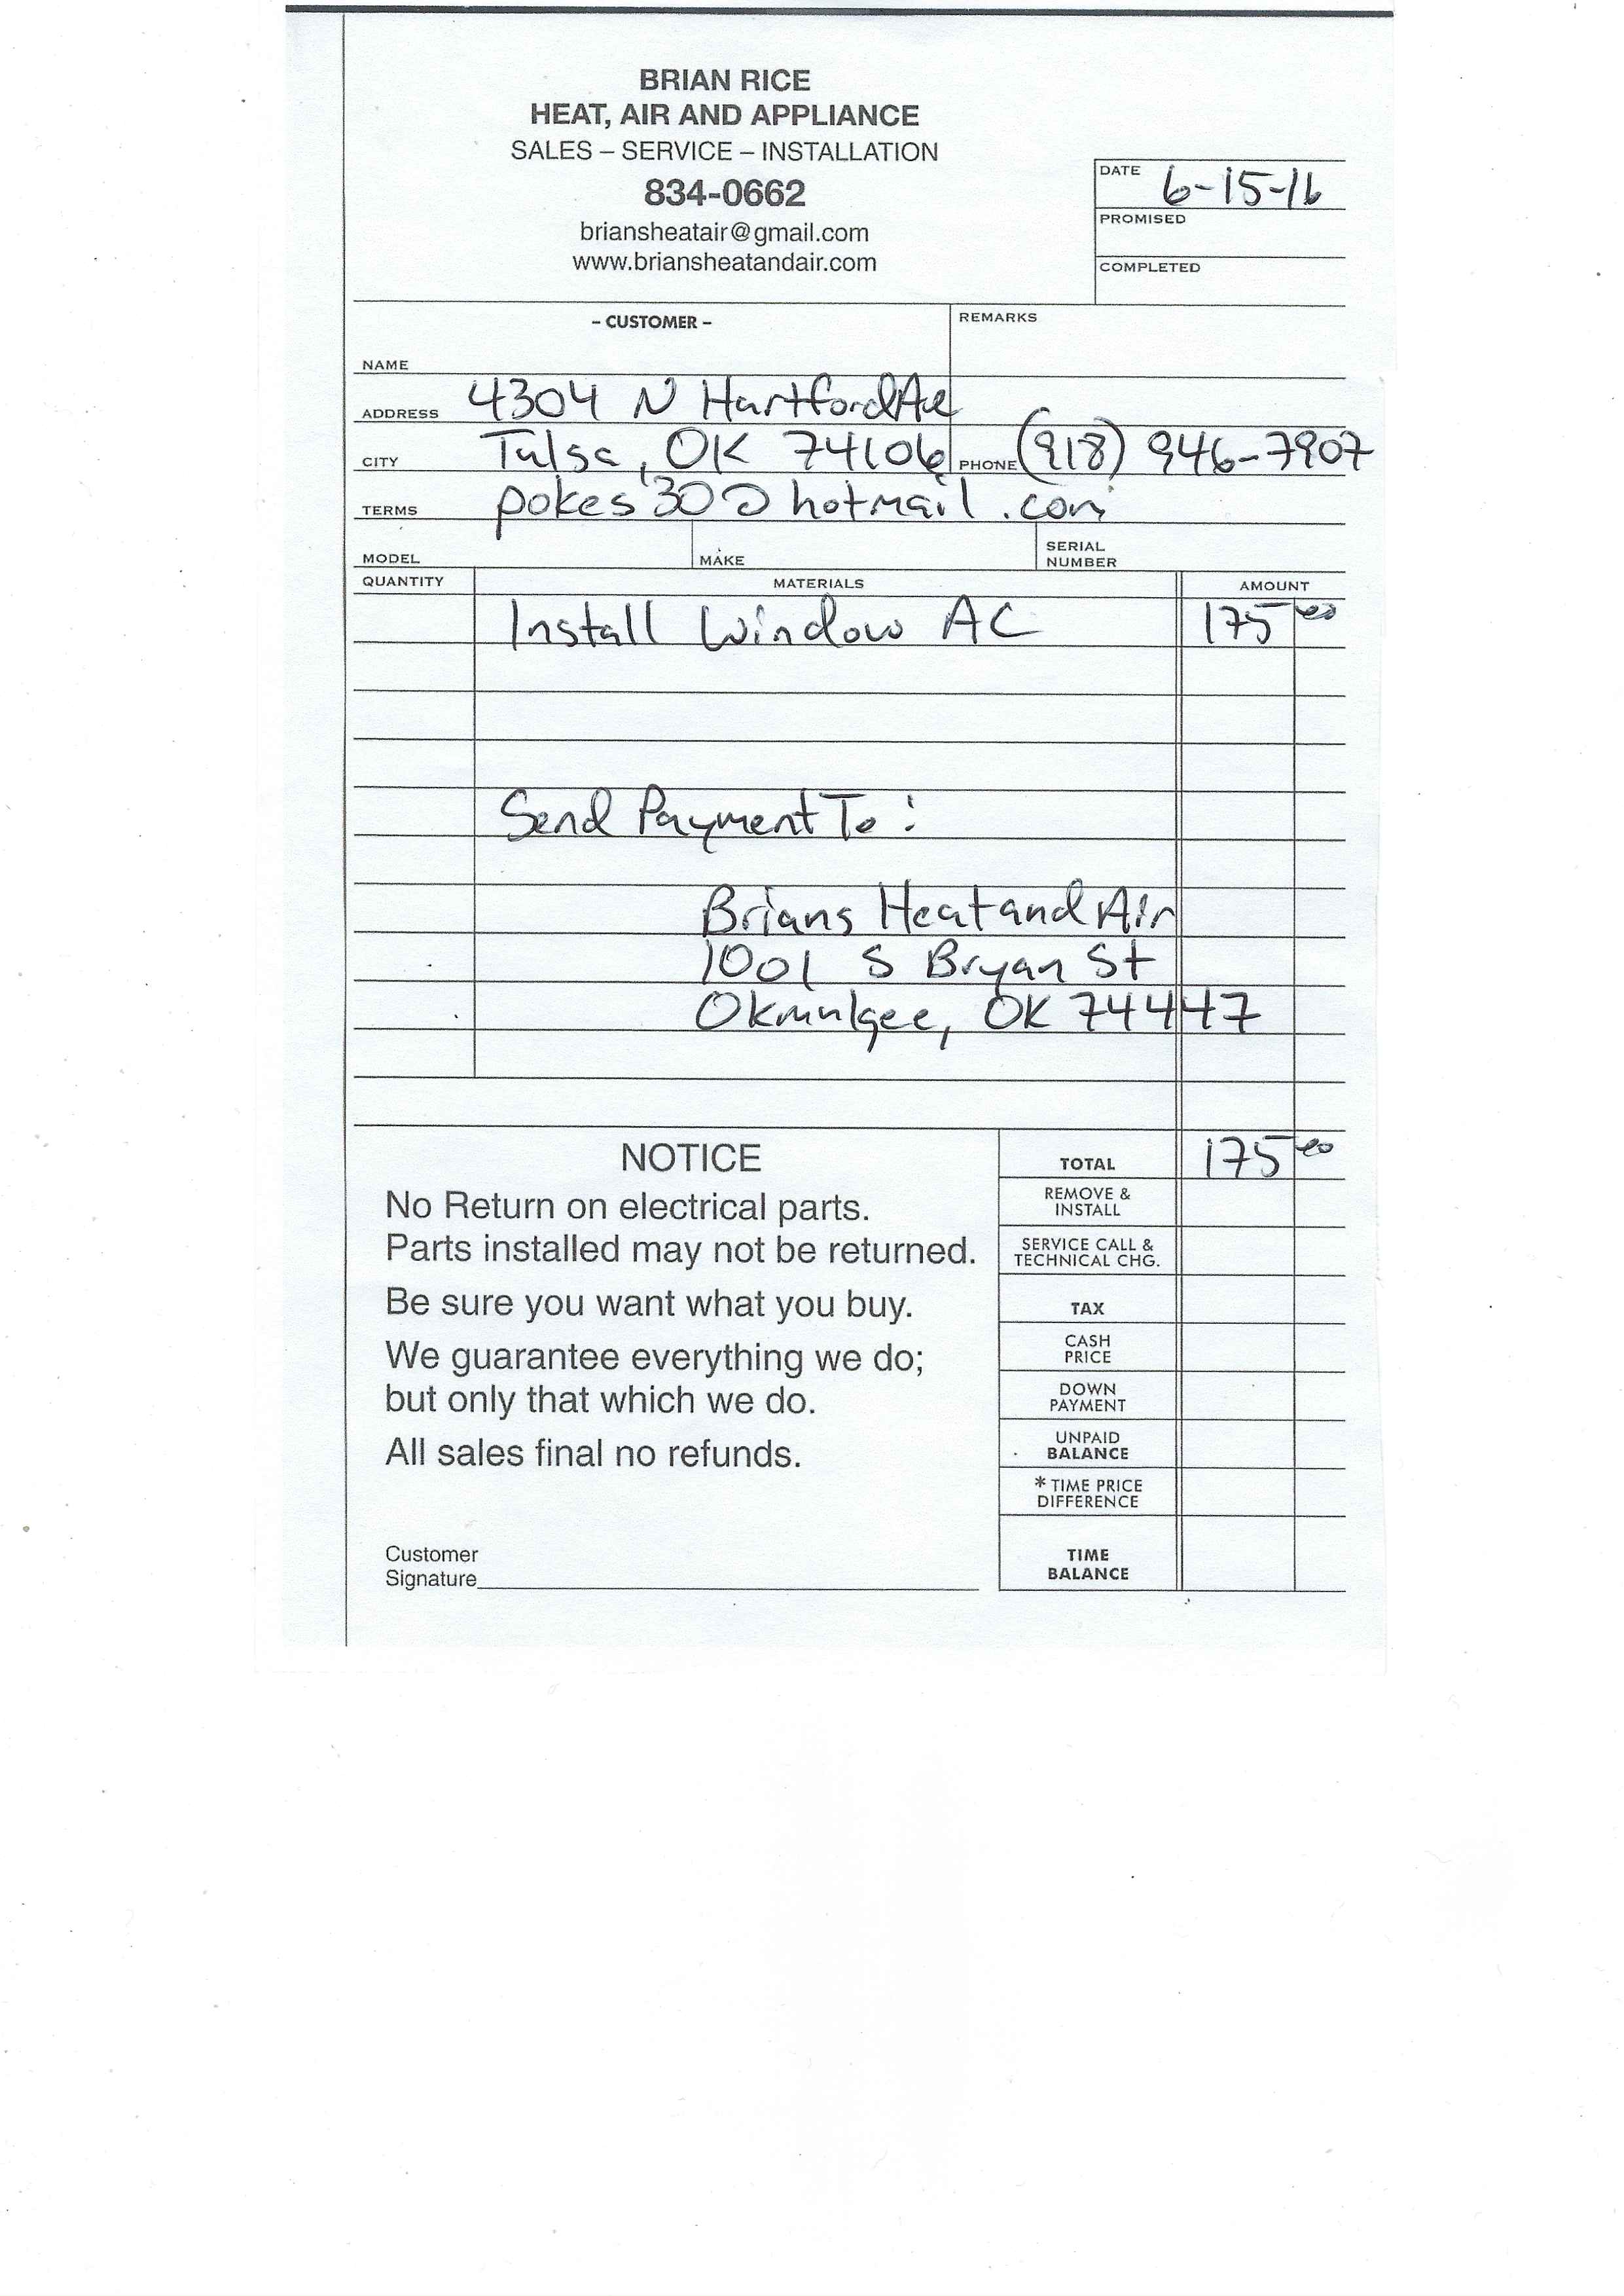 BRIAN RICE
HEAT, AIR AND APPLIANCE
SALES – SERVICE – INSTALLATION
834-0662
briansheatair@gmail.com
www.briansheatandair.com
DATE 6-15-16
PROMISED
COMPLETED
– CUSTOMER –
REMARKS
NAME
ADDRESS 4304 N Hartford Ave
CITY Tulsa, OK 74106 PHONE (918) 946-7907
TERMS pokes30@hotmail.com
MODEL MAKE SERIAL NUMBER
QUANTITY MATERIALS AMOUNT
Install Window AC 175 00
Send Payment To:
Brians Heat and Air
1001 S Bryan St
Okmulgee, OK 74447
NOTICE
No Return on electrical parts.
Parts installed may not be returned.
Be sure you want what you buy.
We guarantee everything we do;
but only that which we do.
All sales final no refunds.
Customer
Signature
TOTAL 175 00
REMOVE &
INSTALL
SERVICE CALL &
TECHNICAL CHG.
TAX
CASH
PRICE
DOWN
PAYMENT
UNPAID
BALANCE
* TIME PRICE
DIFFERENCE
TIME
BALANCE